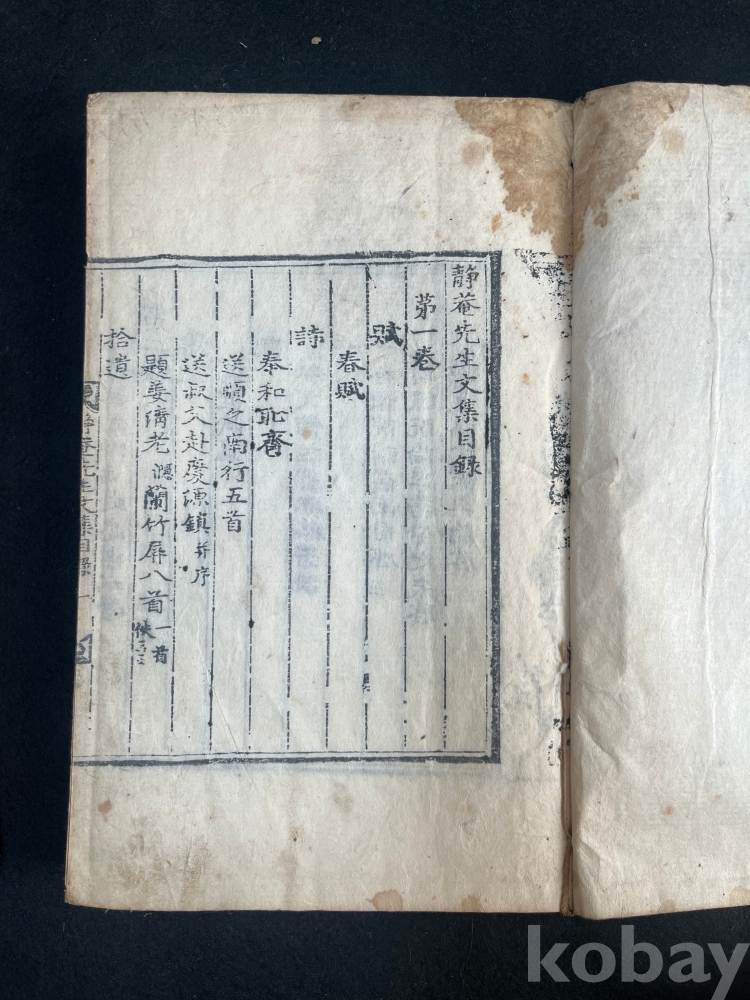 静菴先生文集目録
第一卷
賦
春賦
詩
奉和恥齋
送順之南行五首
送叔父赴慶源鎮并序
題姜清老隱蘭竹屏八首一首佚
拾遺
静菴先生文集目錄 一
kobay